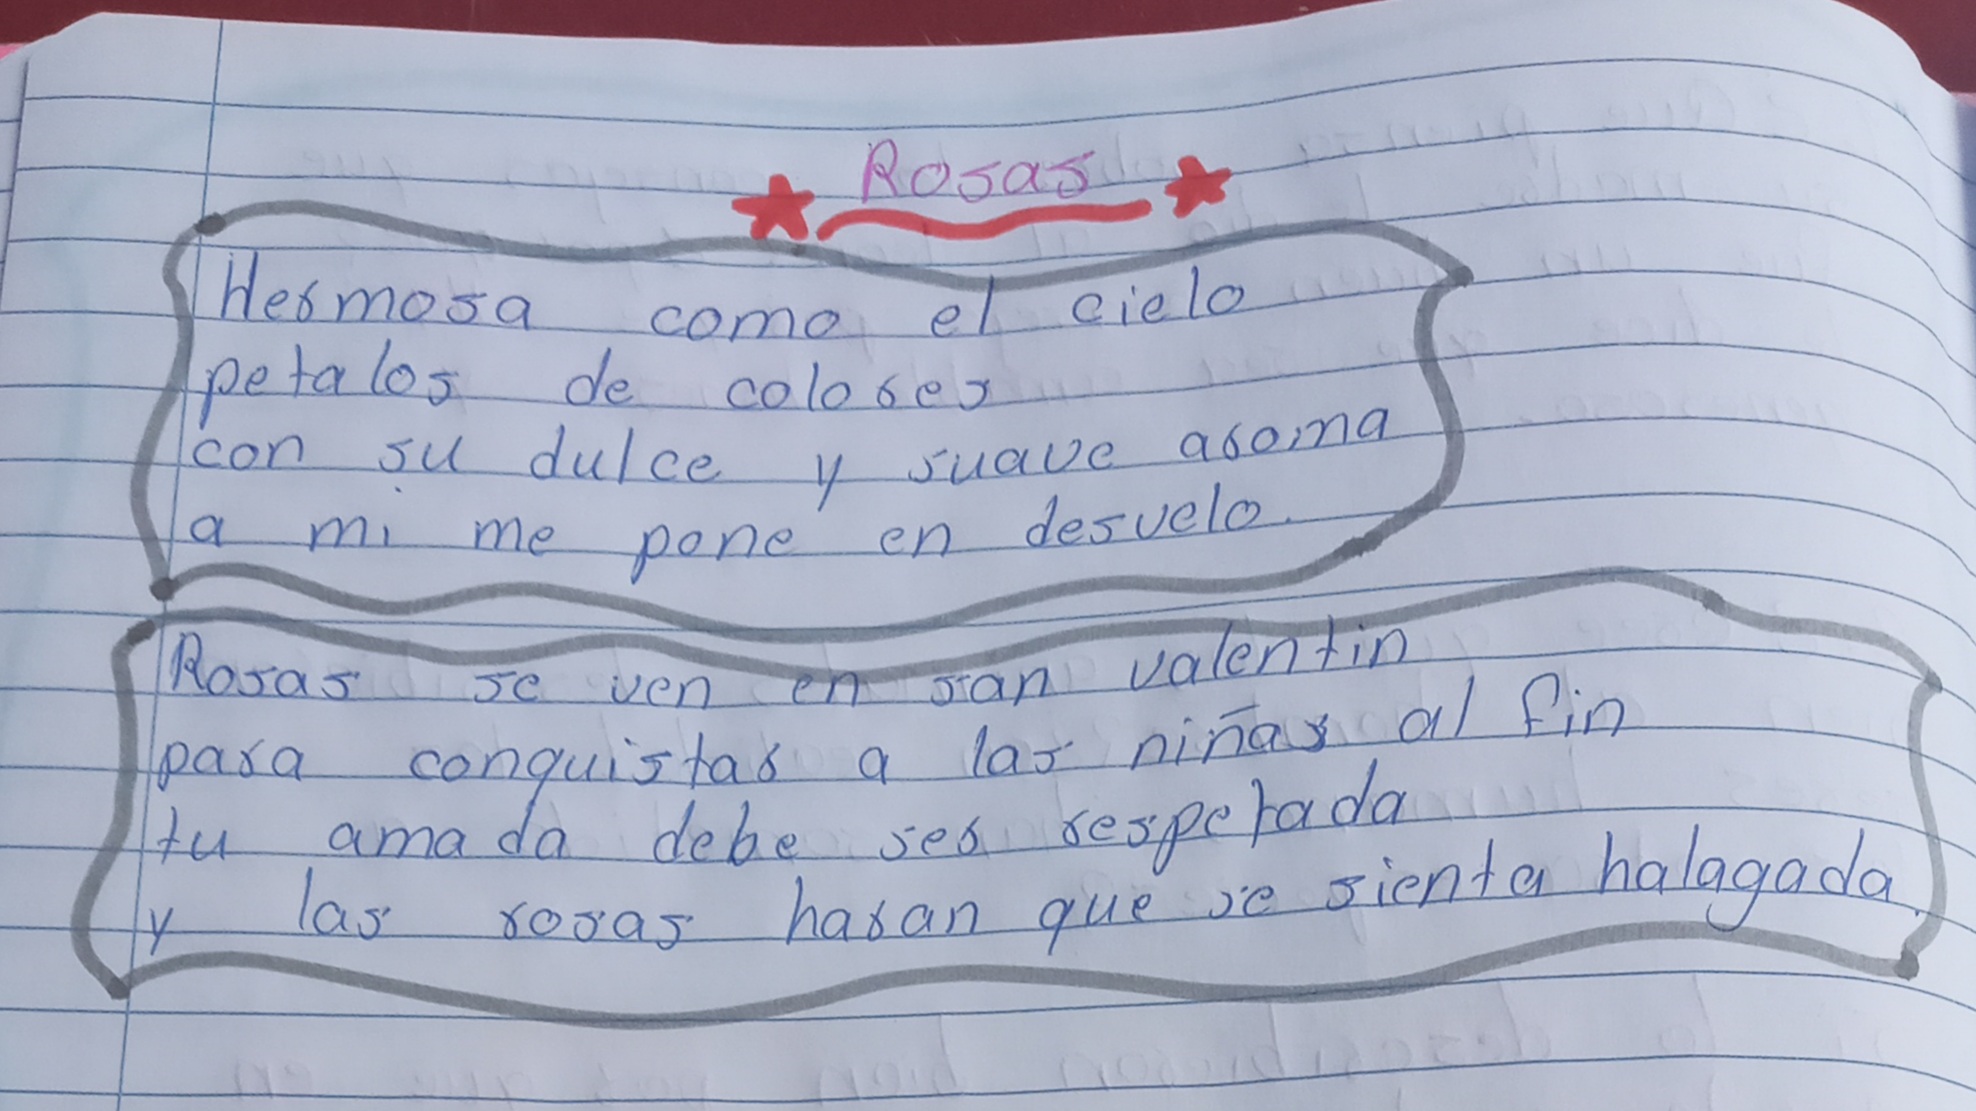 Rosas
Hermosa como el cielo
petalos de colores
con su dulce y suave aroma
a mi me pone en desvelo.
Rosas se ven en san valentin
para conquistar a las niñas al fin
tu amada debe ser respetada
y las rosas haran que se sienta halagada.